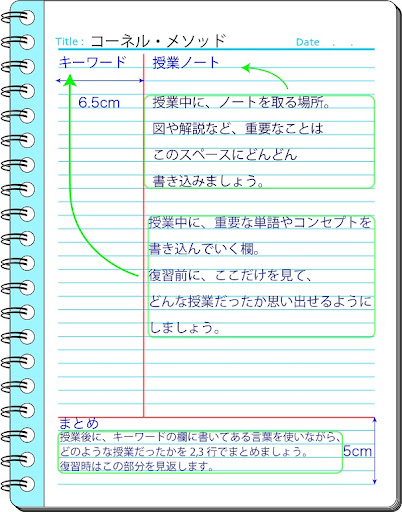 Title : コーネル・メソッド
Date . .
キーワード
授業ノート
6.5cm
授業中に、ノートを取る場所。
図や解説など、重要なことは
このスペースにどんどん
書き込みましょう。
授業中に、重要な単語やコンセプトを
書き込んでいく欄。
復習前に、ここだけを見て、
どんな授業だったか思い出せるように
しましょう。
まとめ
授業後に、キーワードの欄に書いてある言葉を使いながら、
どのような授業だったかを 2,3 行でまとめましょう。
復習時はこの部分を見返します。
5cm